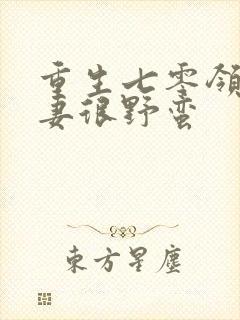 重生七零领
妻很野蛮
東方星塵